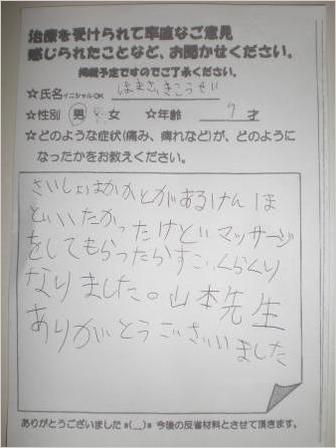 治療を受けられて率直なご意見
感じられたことなど、お聞かせください。
掲載予定ですのでご了承ください。
☆氏名イニシャルOK はまさきこうせい
☆性別 男 女 ☆年齢 9 才
☆どのような症状(痛み、痺れなど)が、どのように
なったかをお教えください。
さいしょはかかとがあるけんほ
どいいたかったけどマッサージ
をしてもらったらすごくらくり
なりました。山本先生
ありがとうございいました
ありがとうございました m(__)m 今後の反省材料とさせて頂きます。